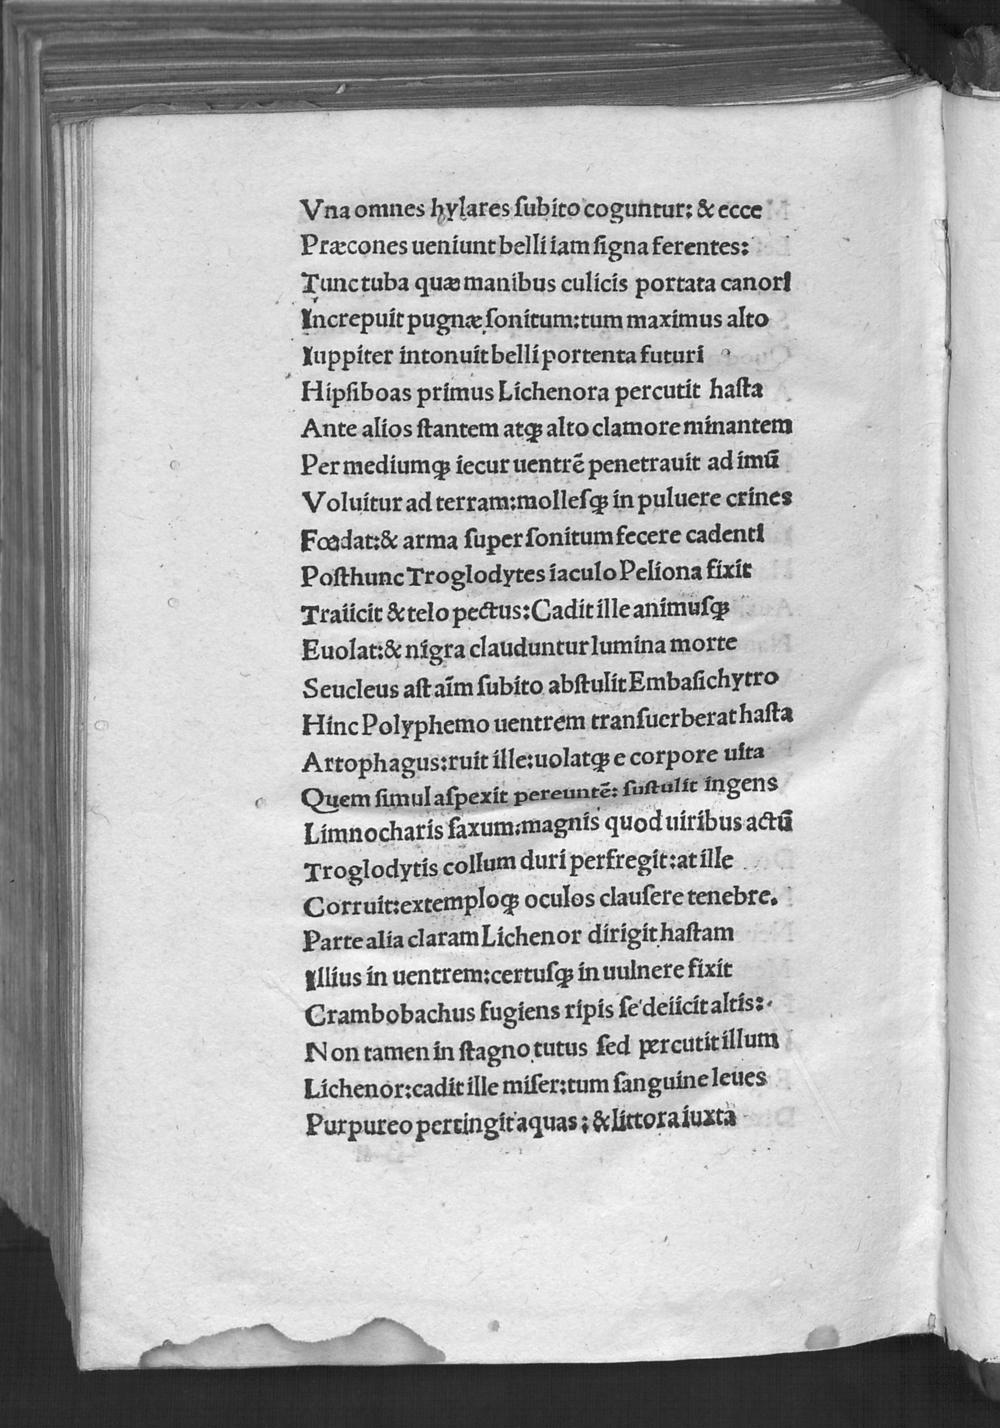 Vna omnes hylares ſubito coguntur: & ecce
Præcones ueniunt belli iam ſigna ferentes:
Tunc tuba quæ manibus culicis portata canori
Increpuit pugnæ ſonitum: tum maximus alto
Iuppiter intonuit belli portenta futuri
Hipſiboas primus Lichenora percutit haſta
Ante alios ſtantem atqꝫ alto clamore minantem
Per mediumqꝫ iecur uentrē penetrauit ad imū
Voluitur ad terram: molleſqꝫ in puluere crines
Fœdat: & arma ſuper ſonitum fecere cadenti
Poſthunc Troglodytes iaculo Peliona fixit
Traiicit & telo pectus: Cadit ille animuſqꝫ
Euolat: & nigra clauduntur lumina morte
Seucleus aſt aīm ſubito abſtulit Embaſichytro
Hinc Polyphemo uentrem tranſuerberat haſta
Artophagus: ruit ille: uolatqꝫ e corpore uita
Quem ſimul aſpexit pereuntē: ſuſtulit ingens
Limnocharis ſaxum: magnis quod uiribus actū
Troglodytis collum duri perfregit: at ille
Corruit: extemploqꝫ oculos clauſere tenebre.
Parte alia claram Lichenor dirigit haſtam
Illius in uentrem: certuſqꝫ in uulnere fixit
Crambobachus fugiens ripis ſe deiicit altis:
Non tamen in ſtagno tutus ſed percutit illum
Lichenor: cadit ille miſer: tum ſanguine leues
Purpureo pertingit aquas: & littora iuxta